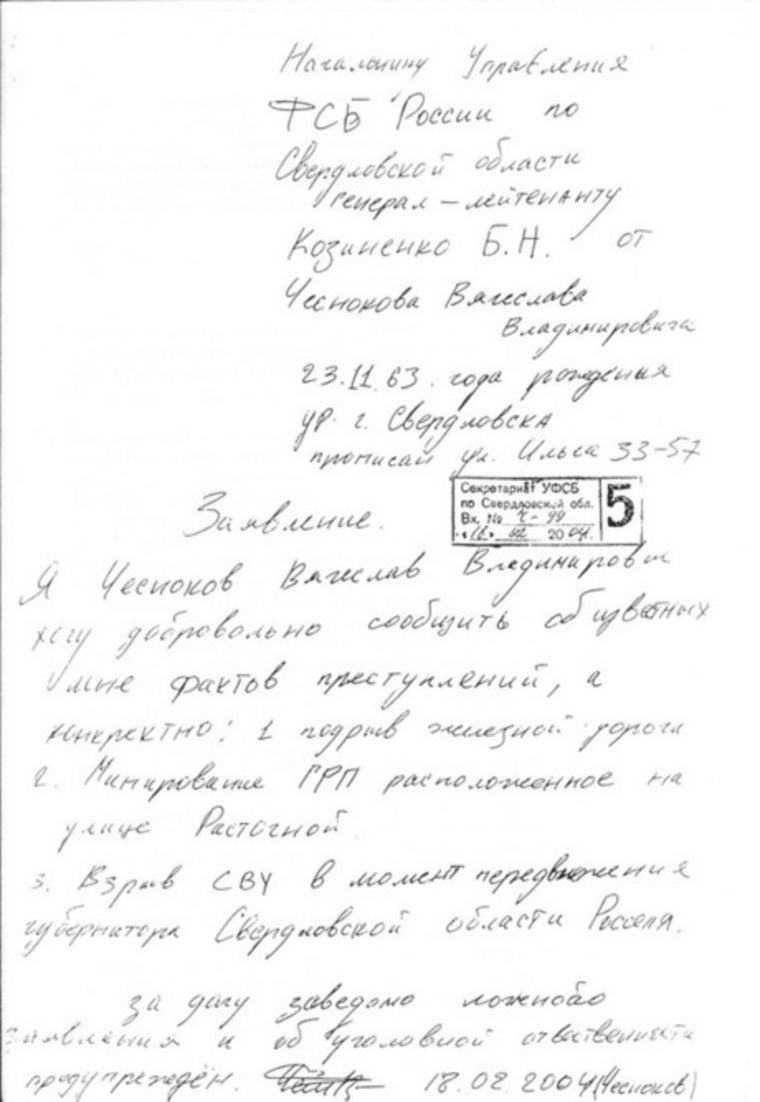 Начальнику Управления
ФСБ России по
Свердловской области
генерал-лейтенанту
Козиненко Б.Н. от
Чеснокова Вячеслава
Владимировича
23.11.63. года рождения
ур. г. Свердловска
прописан ул. Ильича 33-57
Секретариат УФСБ
по Свердловской обл.
Вх. № Ч-99
«18» 02 2004.
5
Заявление.
Я Чесноков Вячеслав Владимирович
хочу добровольно сообщить об известных
мне фактов преступлений, а
конкректно: 1 подрыв железной дороги
2. Минирование ГРП расположенное на
улице Расточной
3. Взрыв СВУ в момент передвижения
губернатора Свердловской области Росселя.
за дачу заведомо ложнобо
заявления и об уголовной ответственности
предупреждён. 18.02.2004 (Чесноков)